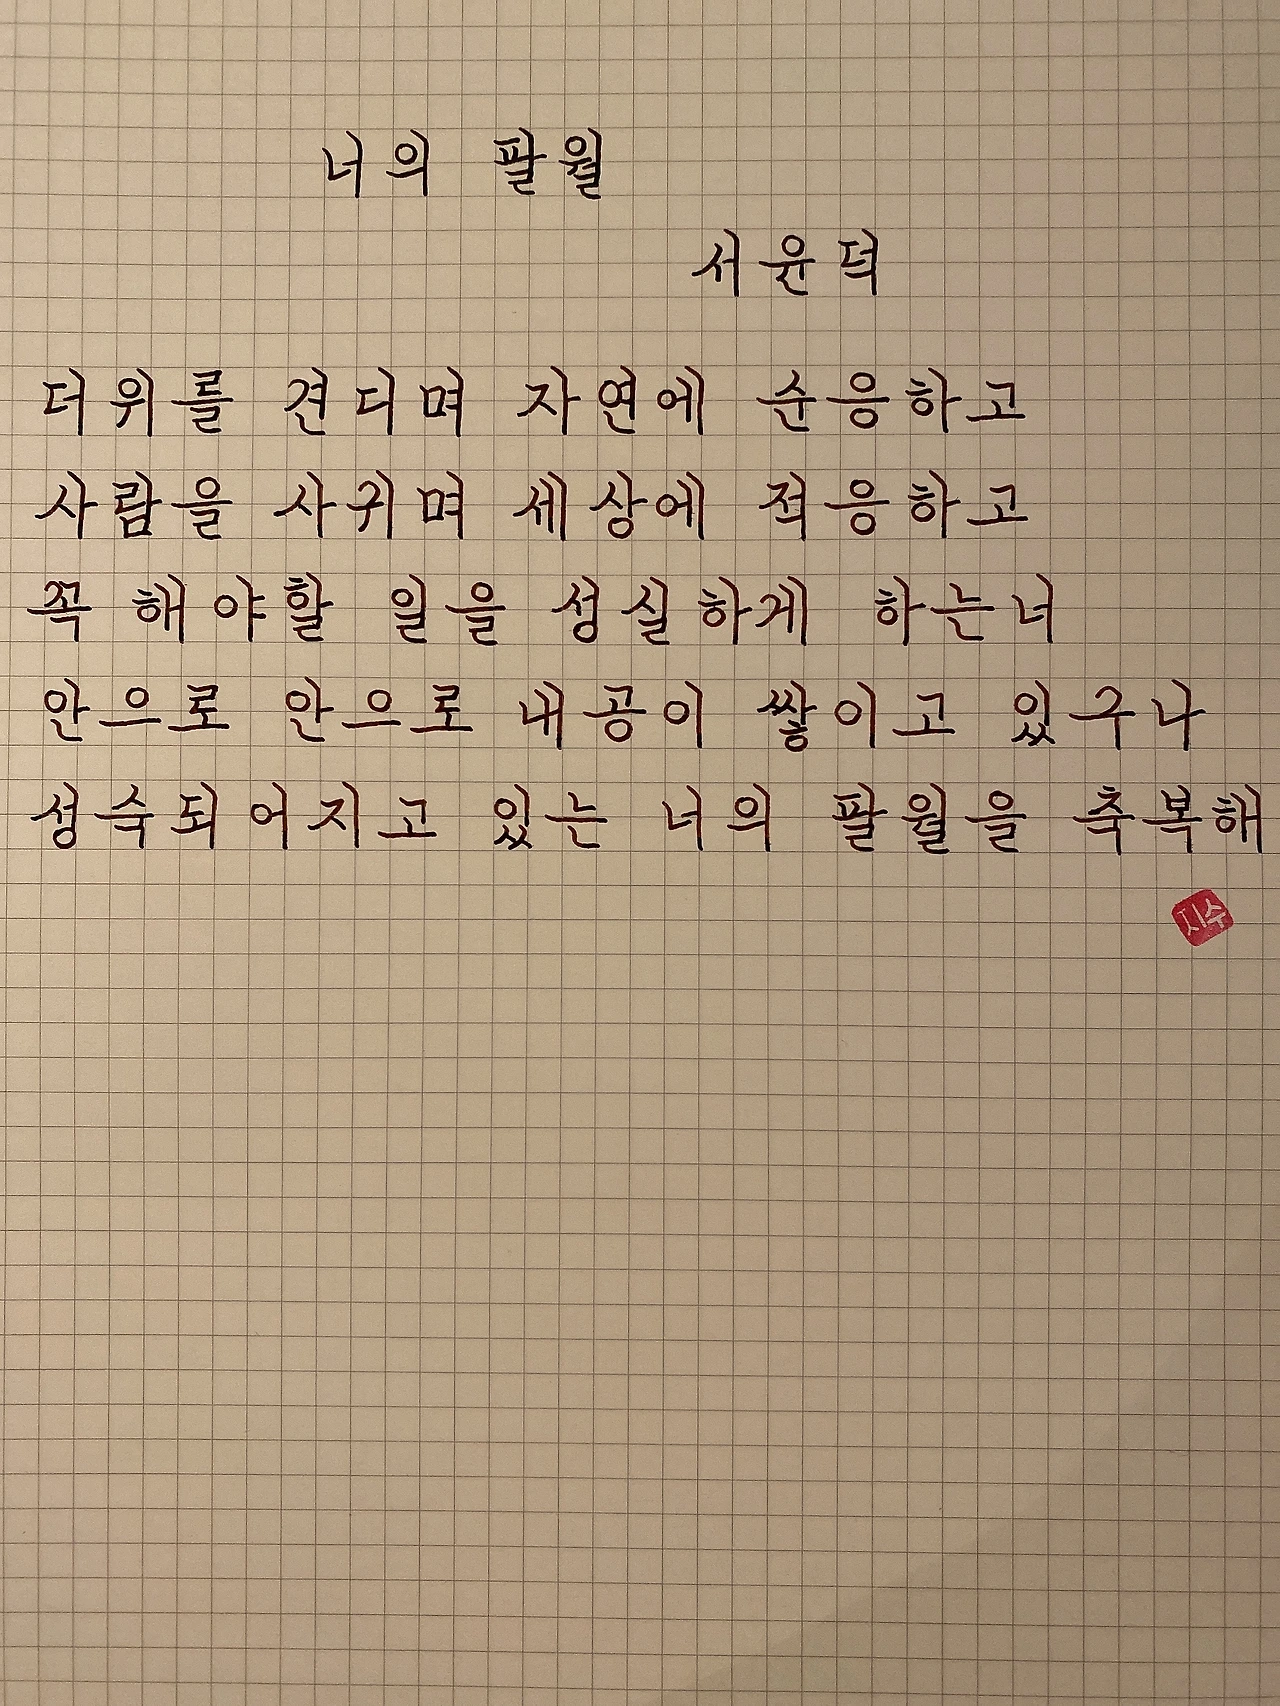 너의 팔월
서윤덕
더위를 견디며 자연에 순응하고
사람을 사귀며 세상에 적응하고
꼭 해야할 일을 성실하게 하는너
안으로 안으로 내공이 쌓이고 있구나
성숙되어지고 있는 너의 팔월을 축복해
지수